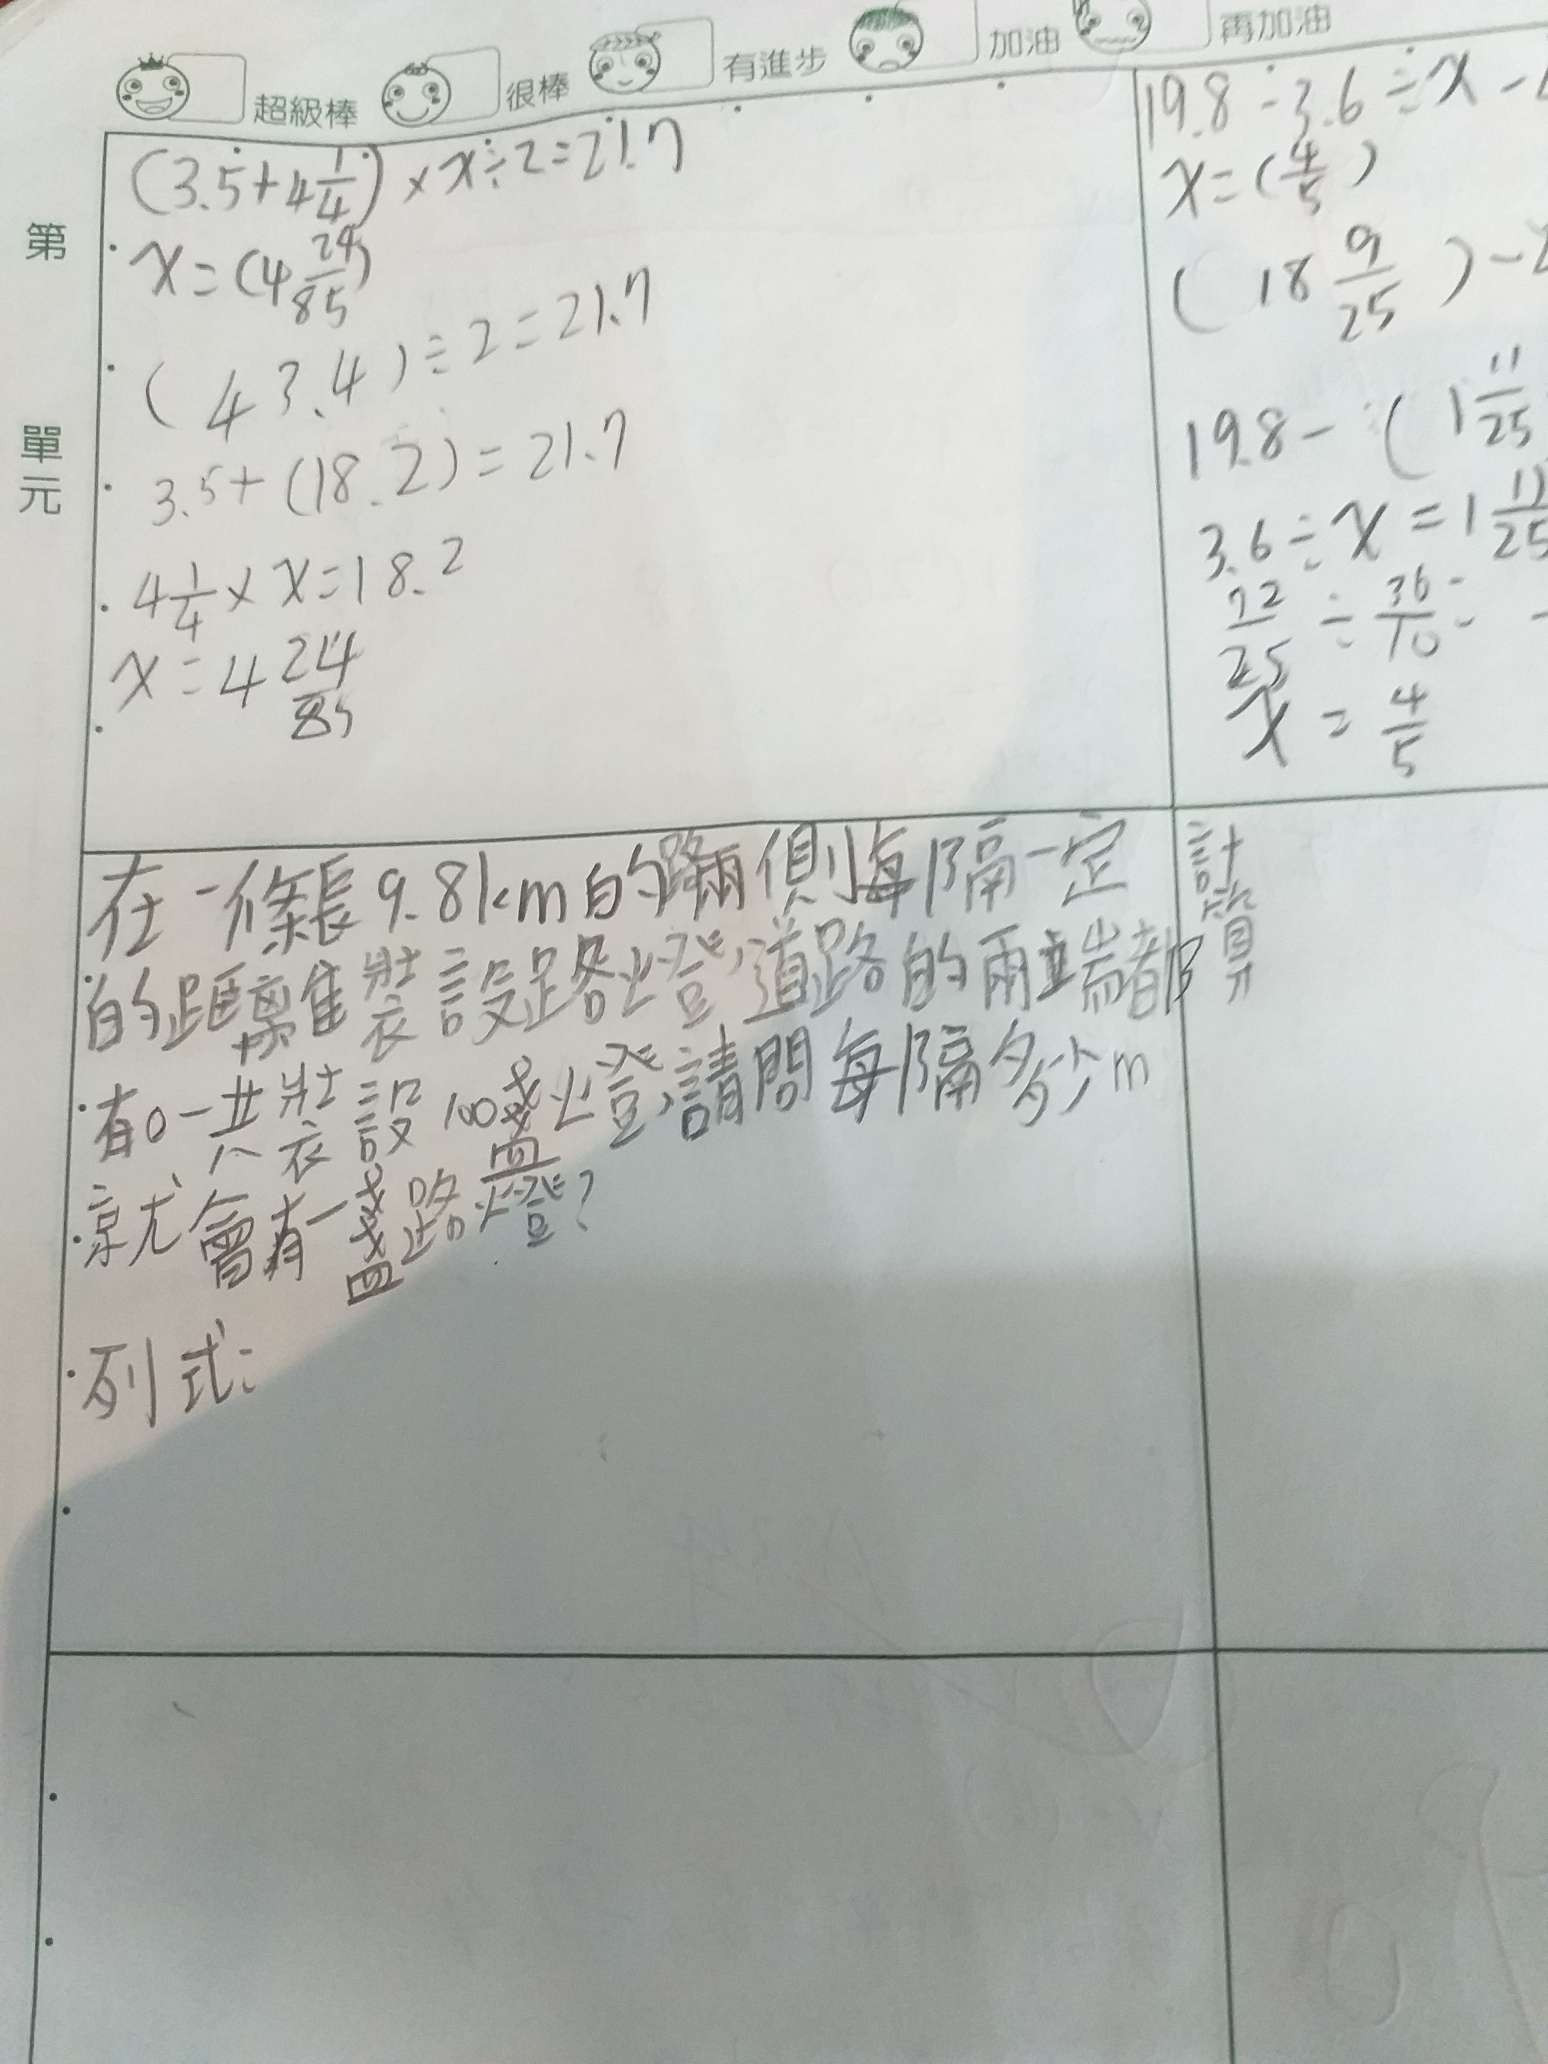 超級棒 很棒 有進步 加油 再加油
第
單元
(3.5+4 1/4)×x÷2=21.7
x=(4 24/85)
(43.4)÷2=21.7
3.5+(18.2)=21.7
4 1/4×x=18.2
x=4 24/85
19.8-3.6÷x-
x=(4/5)
(18 9/25)-
19.8-(1 11/25
3.6÷x=1 11/25
72/25÷36/10=
x=4/5
在一條長9.8km的路兩側,每隔一定
的距離裝設路燈,道路的兩端都
有。一共裝設100盞燈,請問每隔多少m
就會有一盞路燈?
列式:
計算